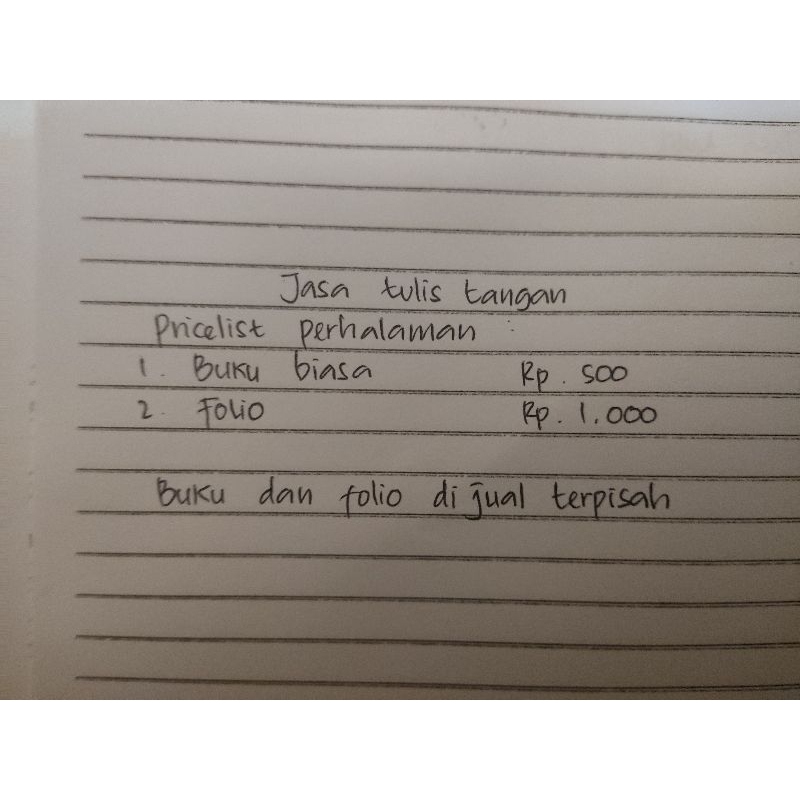 Jasa tulis tangan
Pricelist perhalaman :
1. Buku biasa Rp. 500
2. Folio Rp. 1.000
Buku dan folio di jual terpisah